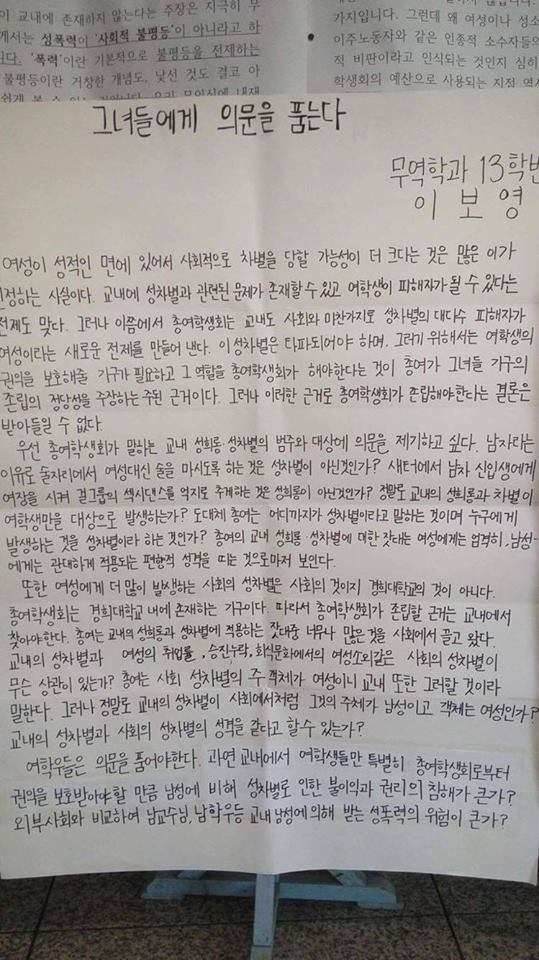 이 교내에 존재하지 않는다는 주장은 지극히 무
께서는 성폭력이 '사회적 불평등'이 아니라고 하
니다. '폭력'이란 기본적으로 불평등을 전제하는
불평등이란 거창한 개념도, 낯선 것도 결코 아
가지입니다. 그런데 왜 여성이나 성소
이주노동자와 같은 인종적 소수자들의
적 비판이라고 인식되는 것인지 심히
학생회의 예산으로 사용되는 지점 역시
그녀들에게 의문을 품는다
무역학과 13학번
이 보 영
여성이 성적인 면에 있어서 사회적으로 차별을 당할 가능성이 더 크다는 것은 많은 이가
정하는 사실이다. 교내에 성차별과 관련된 문제가 존재할 수 있고 여학생이 피해자가 될 수 있다는
전제도 맞다. 그러나 이쯤에서 총여학생회는 교내도 사회와 마찬가지로 성차별의 대다수 피해자가
여성이라는 새로운 전제를 만들어 낸다. 이 성차별은 타파되어야 하며, 그러기 위해서는 여학생의
권익을 보호해줄 기구가 필요하고 그 역할을 총여학생회가 해야한다는 것이 총여가 그녀들 기구의
존립의 정당성을 주장하는 주된 근거이다. 그러나 이러한 근거로 총여학생회가 존립해야한다는 결론은
받아들일 수 없다.
우선 총여학생회가 말하는 교내 성희롱 성차별의 범주와 대상에 의문을 제기하고 싶다. 남자라는
이유로 술자리에서 여성대신 술을 마시도록 하는 것은 성차별이 아닌것인가? 새터에서 남자 신입생에게
여장을 시켜 걸그룹의 섹시댄스를 억지로 추게하는 것은 성희롱이 아닌것인가? 정말로 교내의 성희롱과 차별이
여학생만을 대상으로 발생하는가? 도대체 총여는 어디까지가 성차별이라고 말하는 것이며 누구에게
발생하는 것을 성차별이라 하는 것인가? 총여의 교내 성희롱·성차별에 대한 잣대는 여성에게는 엄격히, 남성
에게는 관대하게 적용되는 편향적 성격을 띠는 것으로마저 보인다.
또한 여성에게 더 많이 발생하는 사회의 성차별은 사회의 것이지 경희대학교의 것이 아니다.
총여학생회는 경희대학교 내에 존재하는 기구이다. 따라서 총여학생회가 존립할 근거는 교내에서
찾아야한다. 총여는 교내의 성희롱과 성차별에 적용하는 잣대중 너무나 많은것을 사회에서 끌고 왔다.
교내의 성차별과 여성의 취업률, 승진누락, 회식문화에서의 여성소외같은 사회의 성차별이
무슨 상관이 있는가? 총여는 사회 성차별의 주 객체가 여성이니 교내 또한 그러할 것이라
말한다. 그러나 정말로 교내의 성차별이 사회에서처럼 그것의 주체가 남성이고 객체는 여성인가?
교내의 성차별과 사회의 성차별의 성격을 같다고 할 수 있는가?
여학우들은 의문을 품어야한다. 과연 교내에서 여학생들만 특별히 총여학생회로부터
권익을 보호받아야할 만큼 남성에 비해 성차별로 인한 불이익과 권리의 침해가 큰가?
외부사회와 비교하여 남교수님, 남학우등 교내 남성에 의해 받는 성폭력의 위험이 큰가?